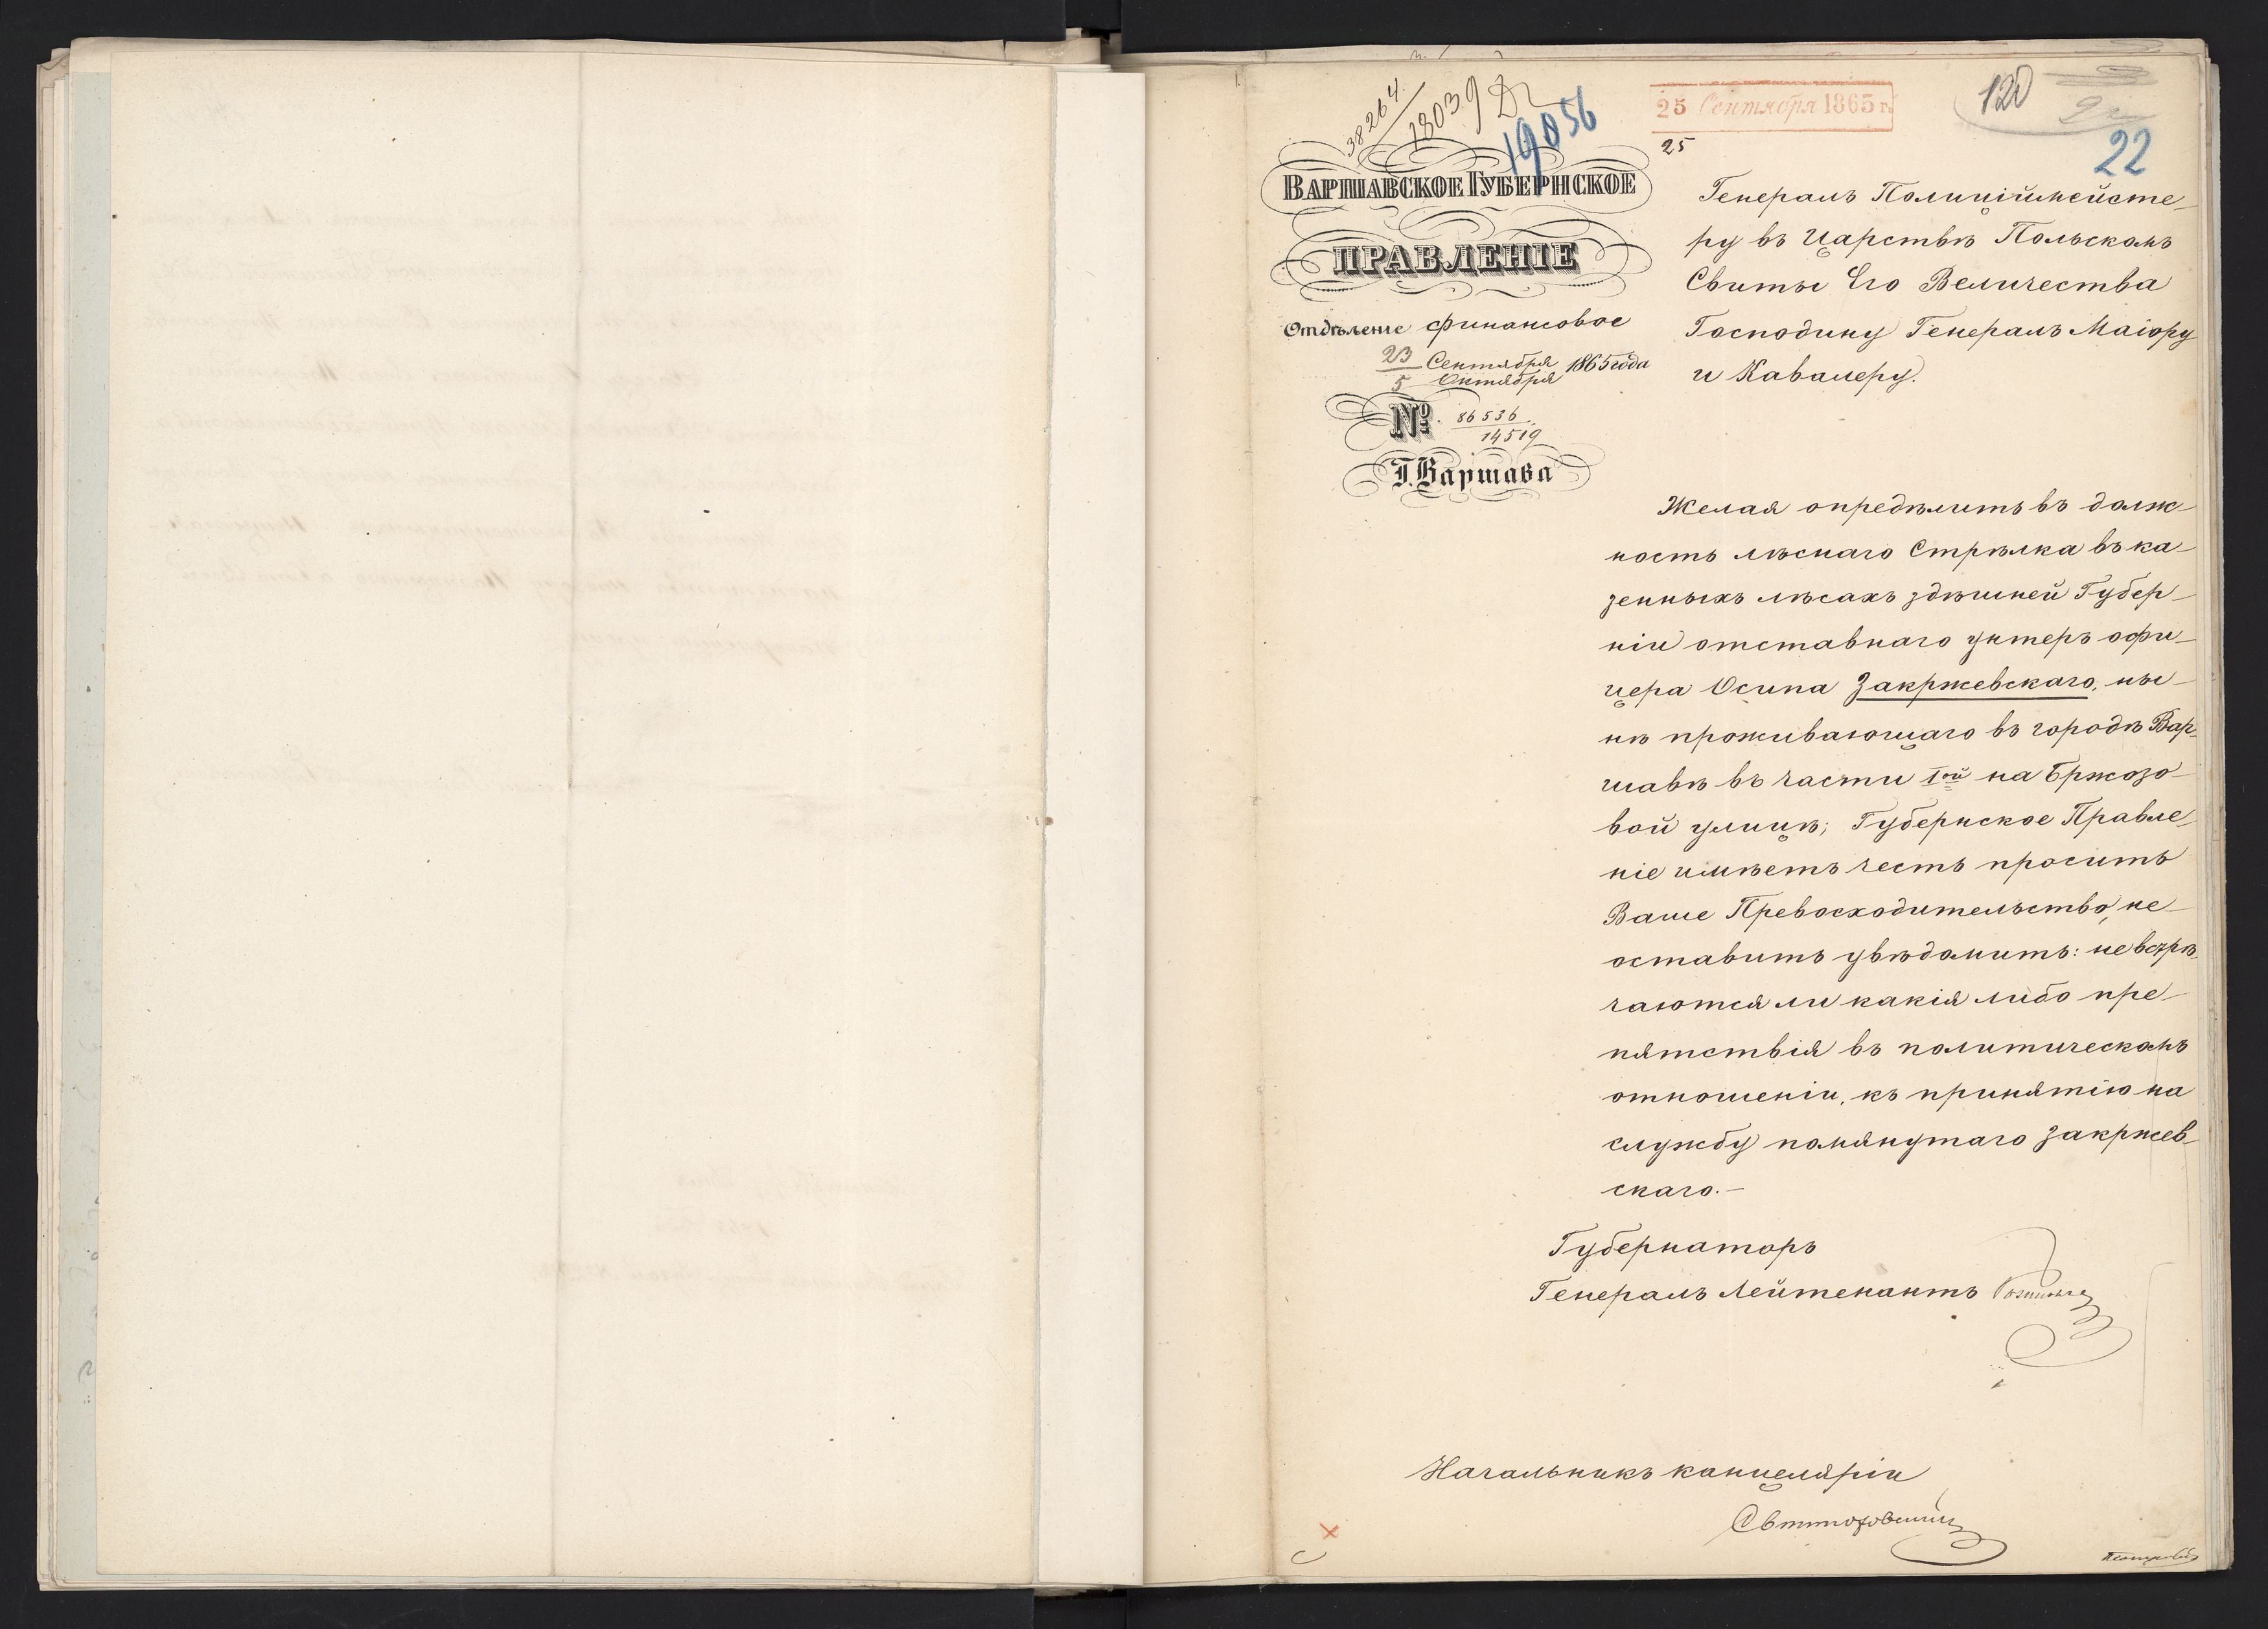 38264
18039
19056
25 Сентября 1865 г.
25
120
22
ВАРШАВСКОЕ ГУБЕРНСКОЕ
ПРАВЛЕНІЕ
Отдѣленіе финансовое
23 Сентября
5 Октября
1865 года
№ 86536
14519
Г. Варшава
Генералъ Полиційймейсте-
ру въ Царствѣ Польскомъ
Свиты Его Величества
Господину Генералъ Маіору
и Кавалеру.
Желая опредѣлить въ долж-
ность лѣснаго Стрѣлка въ ка-
зенныхъ лѣсахъ здѣшней Губер-
ніи отставнаго унтеръ офи-
цера Осипа Закржевскаго, ны-
нѣ проживающаго въ городѣ Вар-
шавѣ въ части Iой на Бржозо-
вой улицѣ; Губернское Правле-
ніе имѣетъ честь просить
Ваше Превосходительство, не-
оставить увѣдомить: не встрѣ-
чаются ли какія либо пре-
пятствія въ политическомъ
отношеніи, къ принятію на
службу помянутаго Закржев-
скаго.-
Губернаторъ
Генералъ Лейтенантъ
Начальникъ канцеляріи